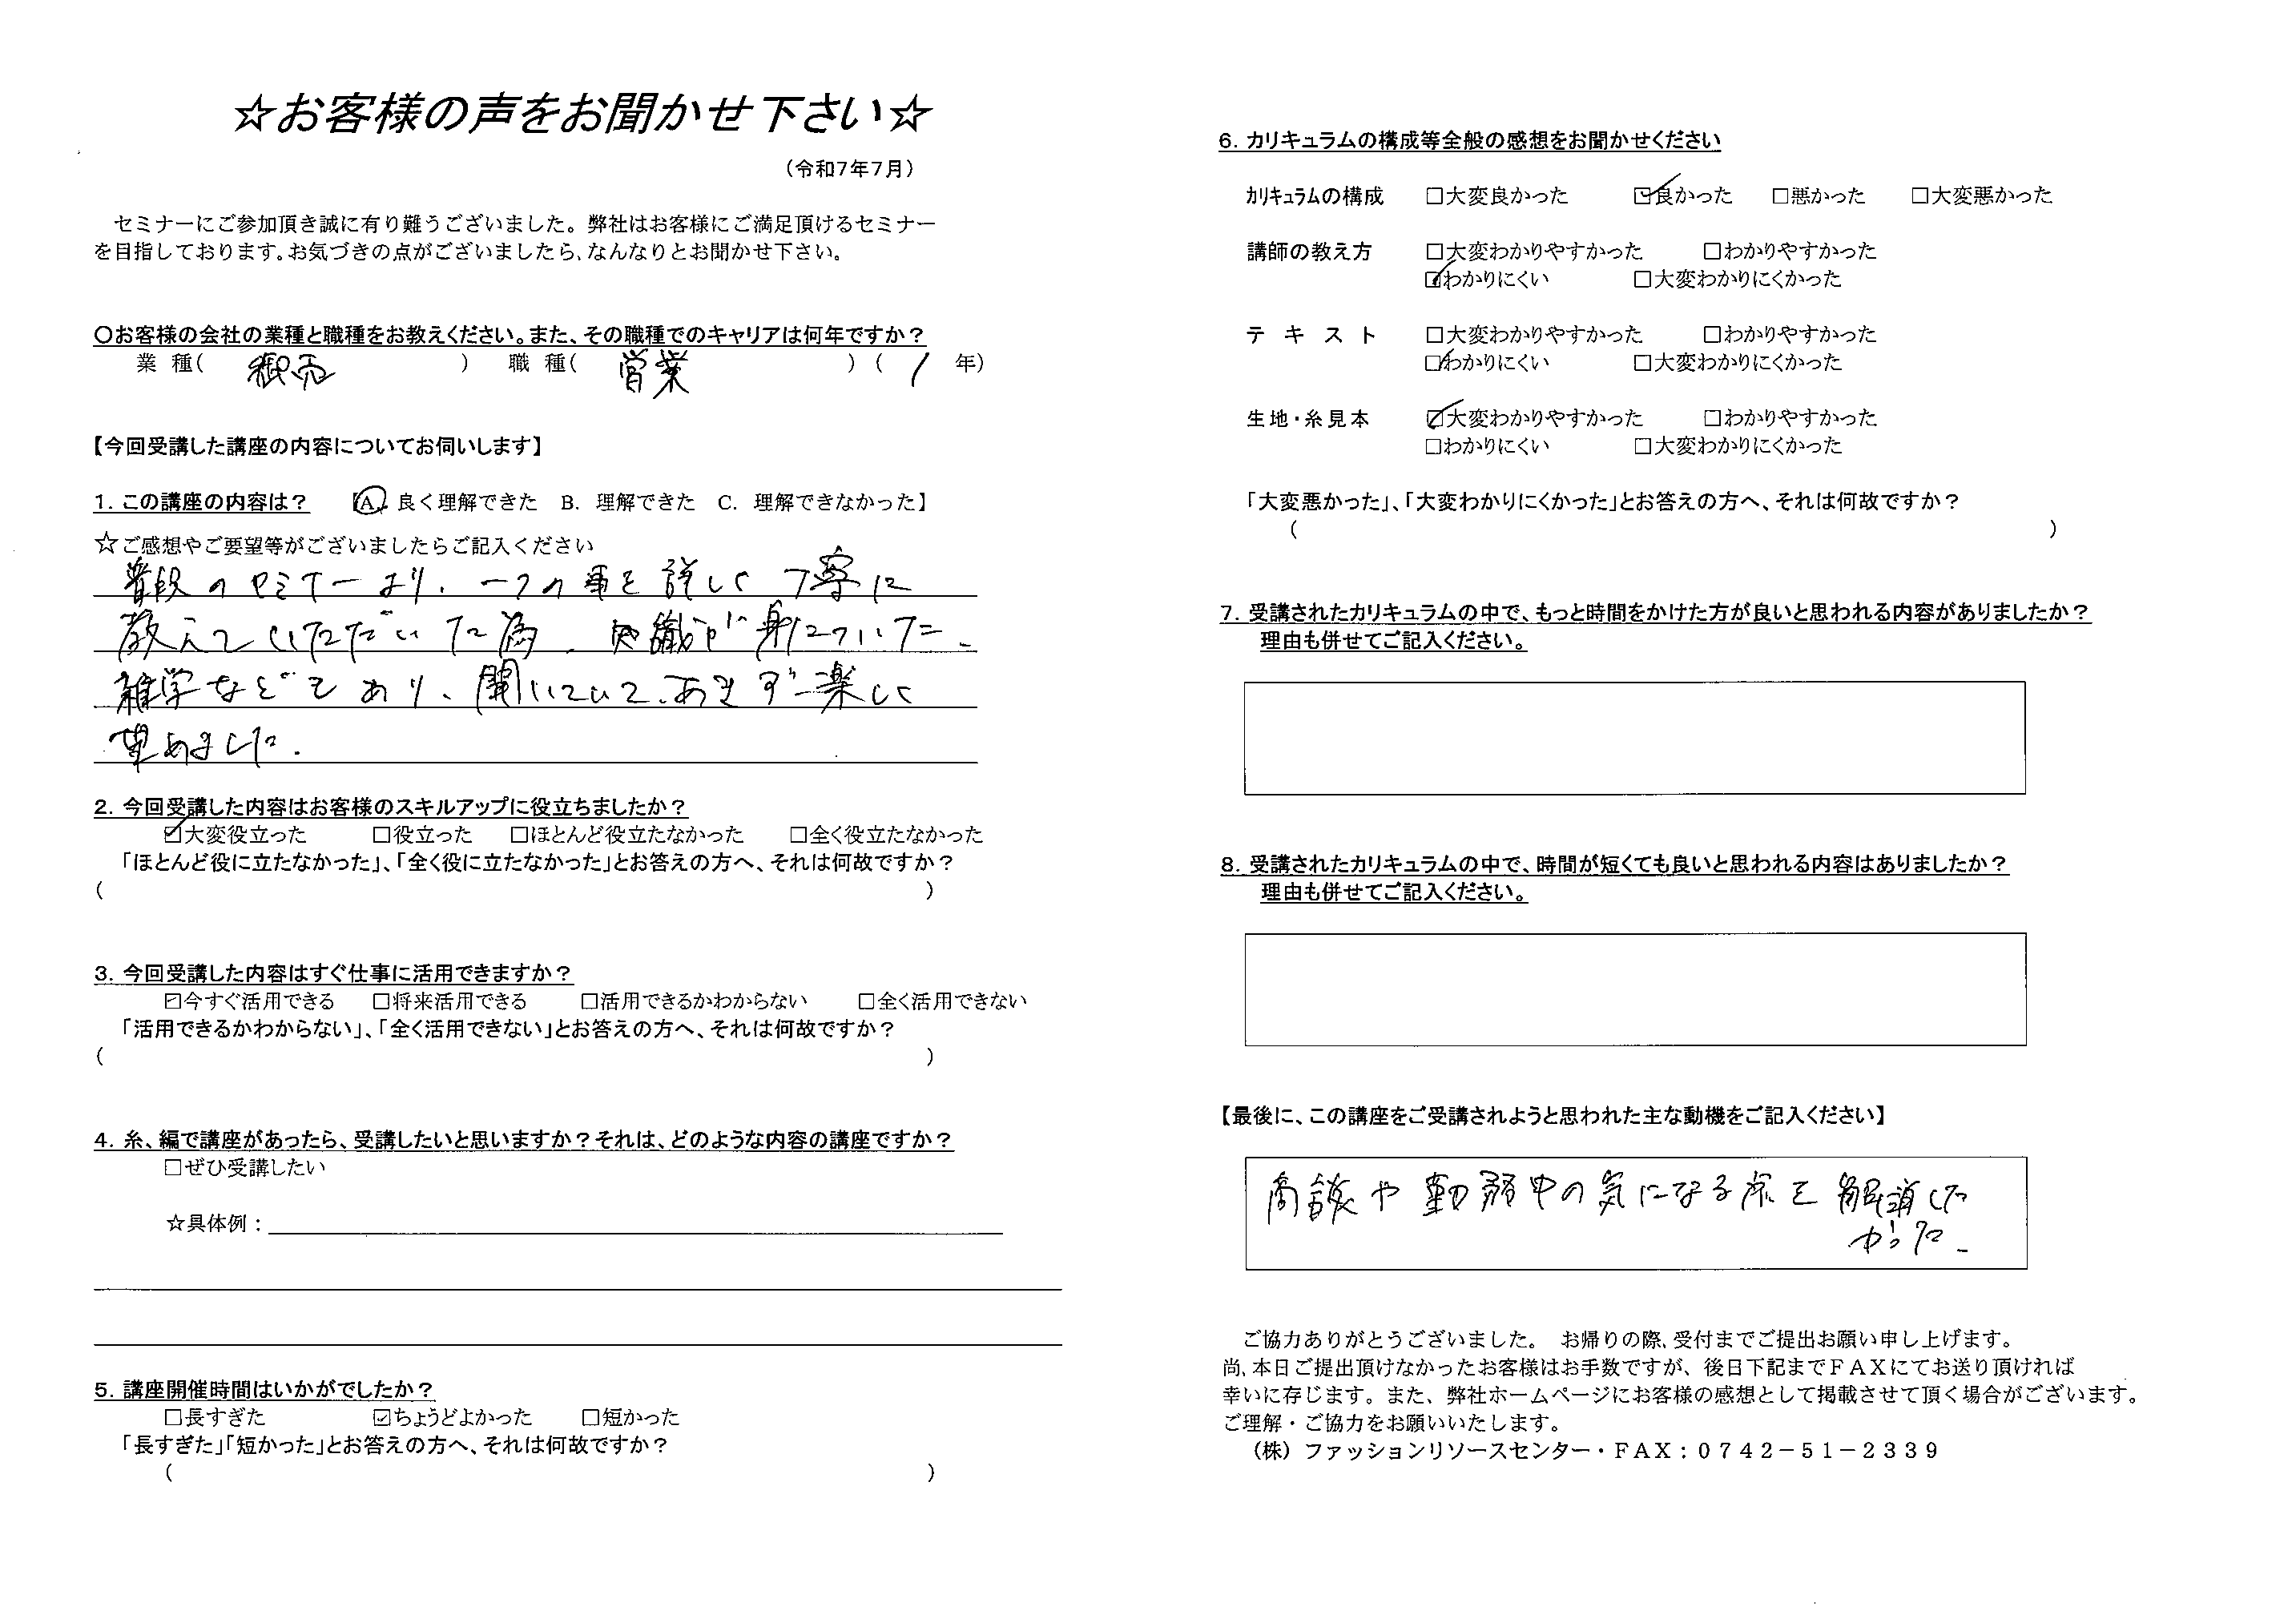 ☆お客様の声をお聞かせ下さい☆
（令和7年7月）
セミナーにご参加頂き誠に有り難うございました。弊社はお客様にご満足頂けるセミナー
を目指しております。お気づきの点がございましたら、なんなりとお聞かせ下さい。
〇お客様の会社の業種と職種をお教えください。また、その職種でのキャリアは何年ですか？
業 種( 卸売 ) 職 種( 営業 ) ( 1 年)
【今回受講した講座の内容についてお伺いします】
1. この講座の内容は？ 【A. 良く理解できた B. 理解できた C. 理解できなかった】
☆ご感想やご要望等がございましたらご記入ください
普段のセミナーより、一つの事を詳しく丁寧に
教えていただいた為、知識が身についた。
雑学などもあり、聞いていて、あきず楽しく
望めました.
2. 今回受講した内容はお客様のスキルアップに役立ちましたか？
☑大変役立った □役立った □ほとんど役立たなかった □全く役立たなかった
「ほとんど役に立たなかった」、「全く役に立たなかった」とお答えの方へ、それは何故ですか？
( )
3. 今回受講した内容はすぐ仕事に活用できますか？
☑今すぐ活用できる □将来活用できる □活用できるかわからない □全く活用できない
「活用できるかわからない」、「全く活用できない」とお答えの方へ、それは何故ですか？
( )
4. 糸、編で講座があったら、受講したいと思いますか？それは、どのような内容の講座ですか？
□ぜひ受講したい
☆具体例：
5. 講座開催時間はいかがでしたか？
□長すぎた ☑ちょうどよかった □短かった
「長すぎた」「短かった」とお答えの方へ、それは何故ですか？
( )
6. カリキュラムの構成等全般の感想をお聞かせください
カリキュラムの構成 □大変良かった ☑良かった □悪かった □大変悪かった
講師の教え方 □大変わかりやすかった □わかりやすかった
☑わかりにくい □大変わかりにくかった
テ キ ス ト □大変わかりやすかった □わかりやすかった
☑わかりにくい □大変わかりにくかった
生地・糸見本 ☑大変わかりやすかった □わかりやすかった
□わかりにくい □大変わかりにくかった
「大変悪かった」、「大変わかりにくかった」とお答えの方へ、それは何故ですか？
( )
7. 受講されたカリキュラムの中で、もっと時間をかけた方が良いと思われる内容がありましたか？
理由も併せてご記入ください。
8. 受講されたカリキュラムの中で、時間が短くても良いと思われる内容はありましたか？
理由も併せてご記入ください。
【最後に、この講座をご受講されようと思われた主な動機をご記入ください】
商談や勤務中の気になる点を解消した
かった。
ご協力ありがとうございました。 お帰りの際、受付までご提出お願い申し上げます。
尚、本日ご提出頂けなかったお客様はお手数ですが、後日下記までＦＡＸにてお送り頂ければ
幸いに存じます。また、弊社ホームページにお客様の感想として掲載させて頂く場合がございます。
ご理解・ご協力をお願いいたします。
（株）ファッションリソースセンター・ＦＡＸ：０７４２－５１－２３３９